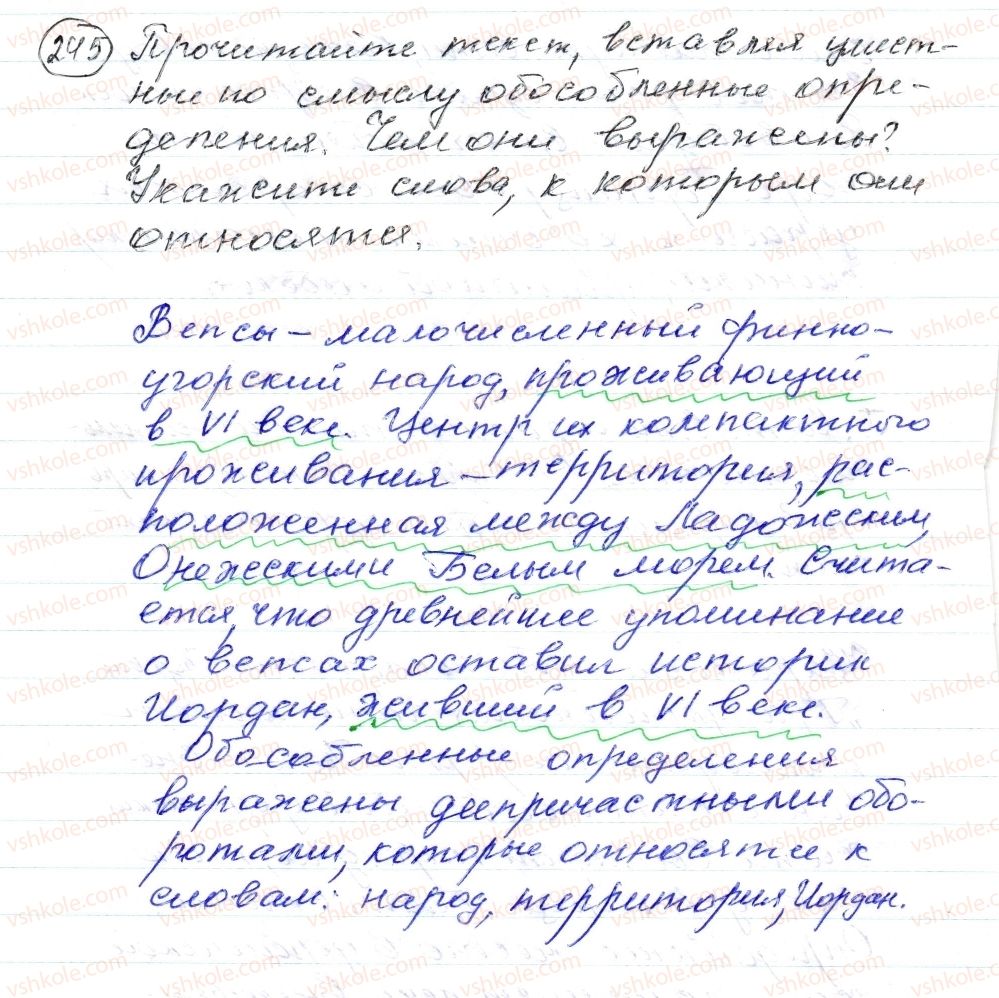 245 Прочитайте текст, вставляя умест-
ные по смыслу обособленные опре-
деления. Чем они выражены?
Укажите слова, к которым они
относятся.
Вепсы – малочисленный финно-
угорский народ, проживающий
в VI веке. Центр их компактного
проживания – территория, рас-
положенная между Ладожским,
Онежскими Белым морем. Счита-
ется, что древнейшее упоминание
о вепсах оставил историк
Иордан, живший в VI веке.
Обособленные определения
выражены деепричастными обо-
ротами, которые относятся к
словам: народ, территория, Иордан.